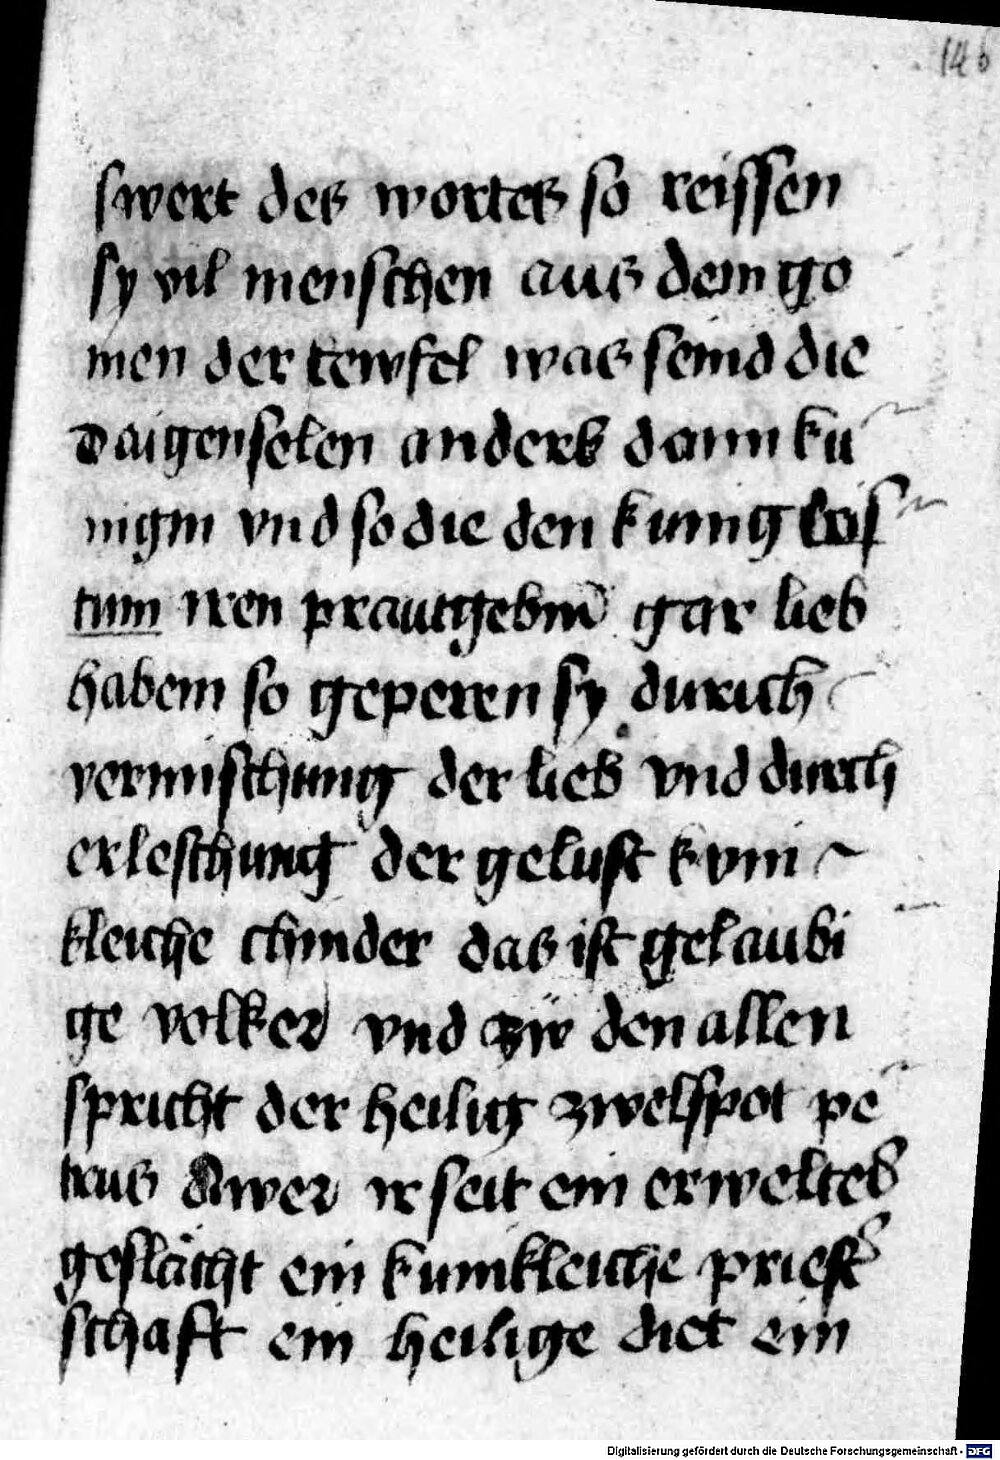 146
swert des wortes so reissen
sy vil menschen aus dem go
men der tewfel was seind die
aigen selen anders dann ku
nigin vnd so die den kunig cris
tum iren prautgebm gar lieb
habem so geperen sy durich
vermischung der lieb vnd durch
erleschung der gelust kvni
kleiche chinder das ist gelaubi
ge volker vnd zw den allen
spricht der heilig zwelfpot pe
trus Awer ir seit ein erweltes
geslächt ein kunikleiche priest
schaft ein heilige diet ein
Digitalisierung gefördert durch die Deutsche Forschungsgemeinschaft - DFG